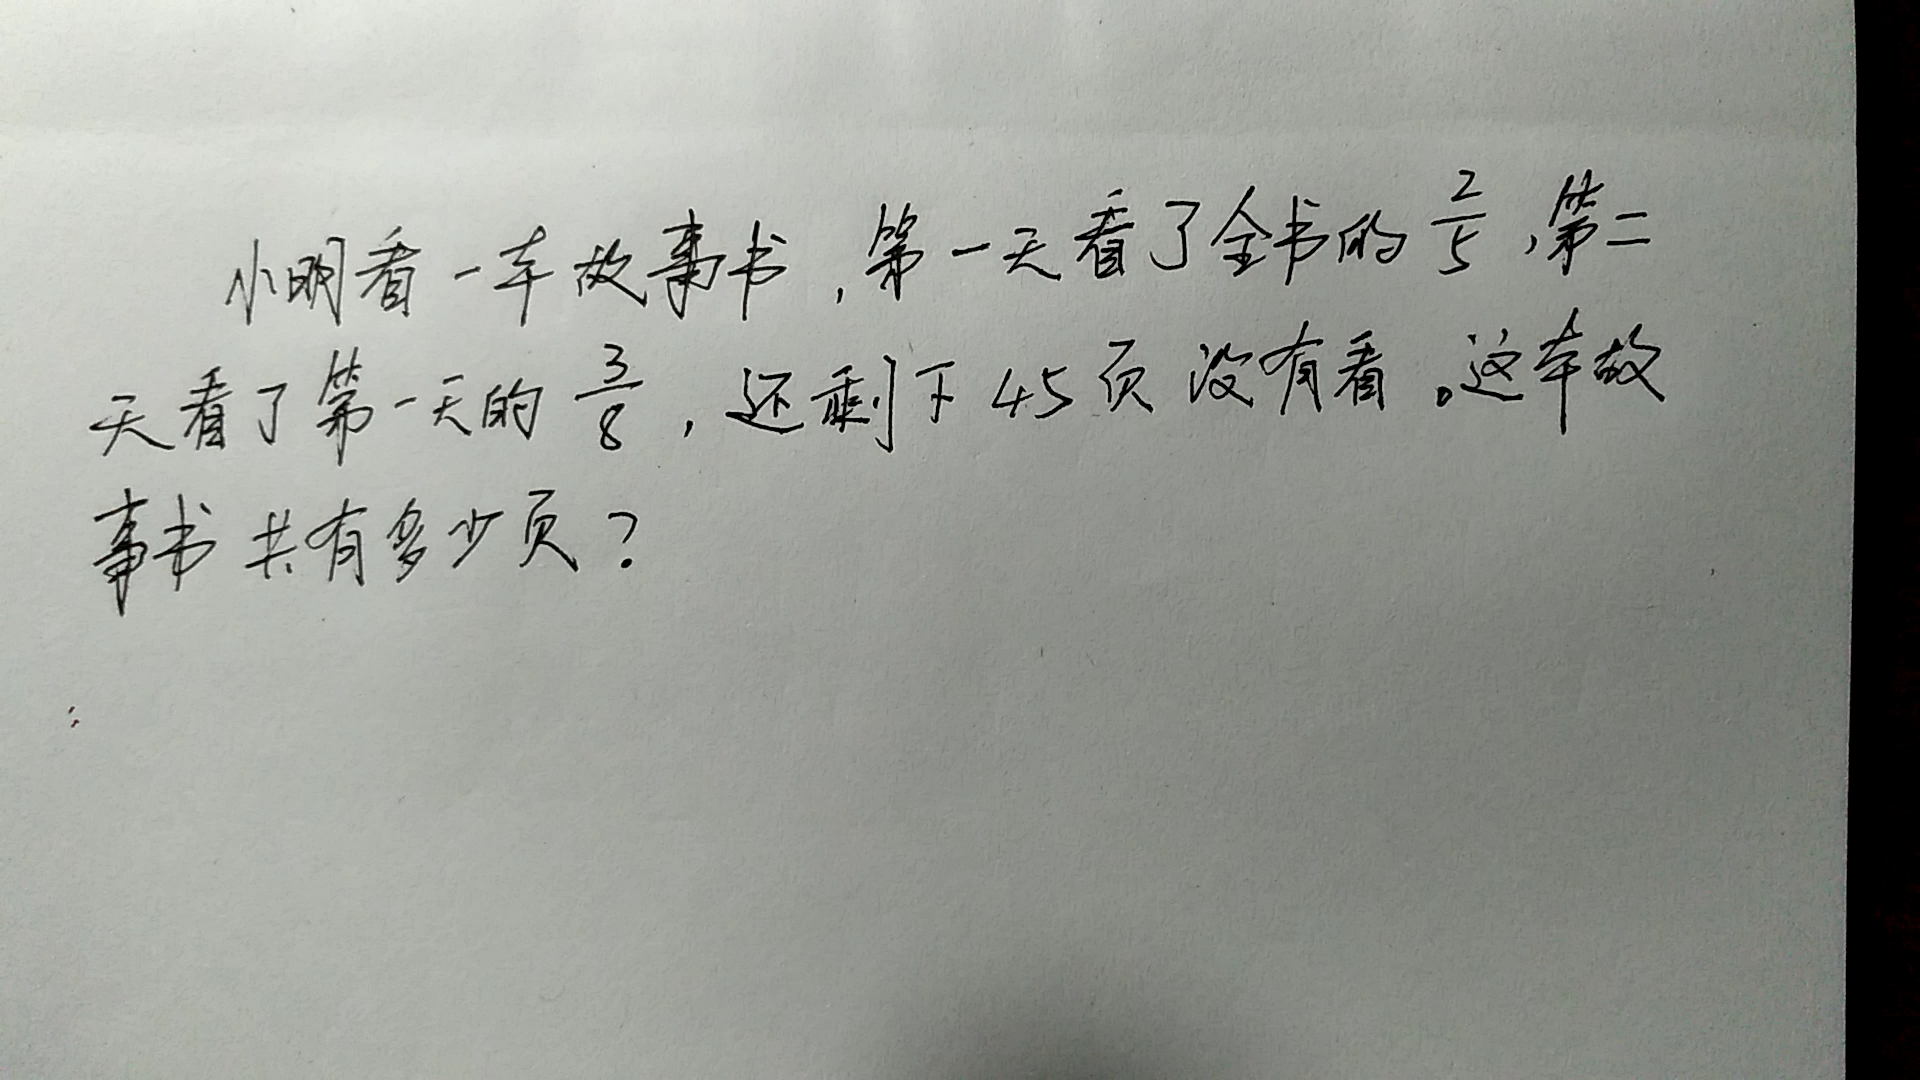 小明看一本故事书,第一天看了全书的2/5,第二
天看了第一天的3/8,还剩下45页没有看。这本故
事书共有多少页?